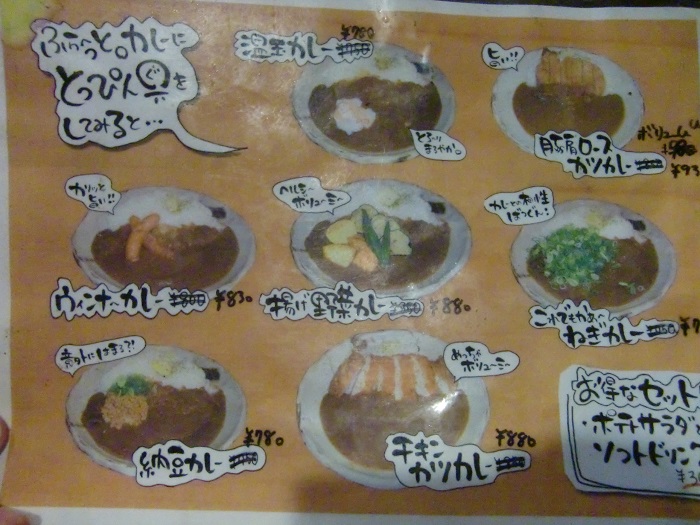 ふらっと。カレーに
とっぴん具を
してみると…
¥780
温玉カレー
とろ〜り
まろやか。
旨い!!
ボリューム
豚肩ロース
カツカレー
¥93
カリッと
旨い!!
ウィンナーカレー
¥830
ヘルシー
ボリューミー
揚げ野菜カレー
¥880
カレーとの相性
ばつぐん!
ねぎカレー
¥7
意外にはまる?!
¥780
納豆カレー
めっちゃ
ボリューミー
¥880
チキン
カツカレー
お得なセット
・ポテトサラダ
ソフトドリン